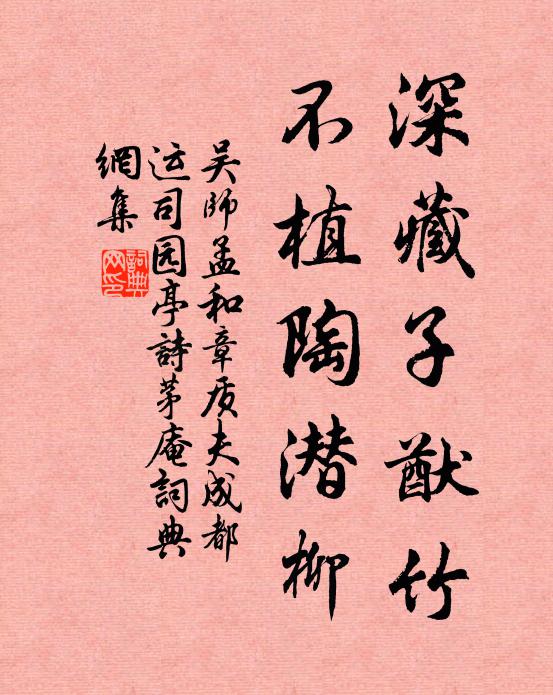 深藏子猷竹
不植陶潜柳
吴師孟和章质夫成都
运司园亭詩茅庵詞典
網集
詞典
网印